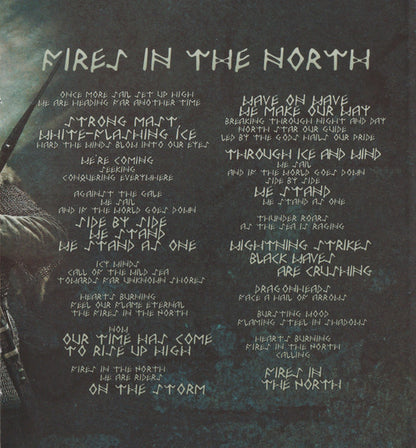 FIRES IN THE NORTH
ONCE MORE SAIL SET UP HIGH
WE ARE HEADING FAR ANOTHER TIME
STRONG MAST
WHITE-FLASHING ICE
HARD THE WINDS BLOW INTO OUR EYES
WE'RE COMING
SEEKING
CONQUERING EVERYWHERE
AGAINST THE GALE
WE SAIL
AND IF THE WORLD GOES DOWN
SIDE BY SIDE
WE STAND
WE STAND AS ONE
ICY WINDS
CALL OF THE WILD SEA
TOWARDS FAR UNKNOWN SHORES
HEARTS BURNING
FEEL OUR FLAME ETERNAL
THE FIRES IN THE NORTH
NOW
OUR TIME HAS COME
TO RISE UP HIGH
FIRES IN THE NORTH
WE ARE RIDERS
ON THE STORM
WAVE ON WAVE
WE MAKE OUR WAY
BREAKING THROUGH NIGHT AND DAY
NORTH STAR OUR GUIDE
LED BY THE GODS HAILS OUR PRIDE
THROUGH ICE AND WIND
WE SAIL
AND IF THE WORLD GOES DOWN
SIDE BY SIDE
WE STAND
WE STAND AS ONE
THUNDER ROARS
AS THE SEA IS RAGING
LIGHTNING STRIKES
BLACK WAVES
ARE CRUSHING
DRAGONHEADS
FACE A HAIL OF ARROWS
BURSTING WOOD
FLAMING STEEL IN SHADOWS
HEARTS BURNING
FIRES IN THE NORTH
CALLING
FIRES IN
THE NORTH